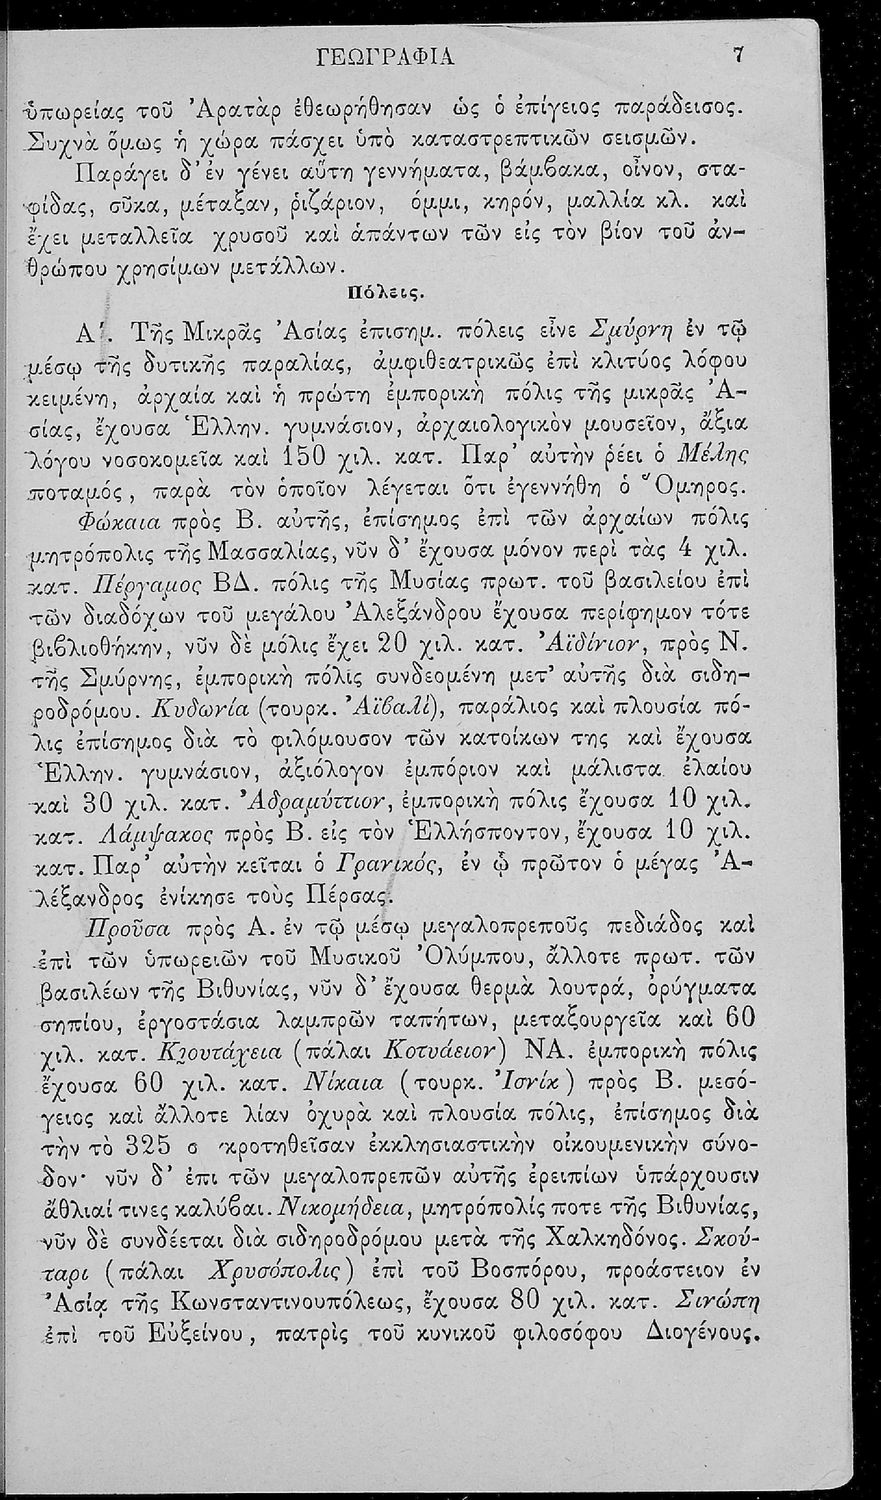 ΓΕΩΓΡΑΦΙΑ 7
ὑπωρείας τοῦ Ἀρατὰρ ἐθεωρήθησαν ὡς ὁ ἐπίγειος παράδεισος.
Συχνὰ ὅμως ἡ χώρα πάσχει ὑπὸ καταστρεπτικῶν σεισμῶν.
Παράγει δ' ἐν γένει αὕτη γεννήματα, βάμβακα, οἶνον, στα-
φίδας, σῦκα, μέταξαν, ῥιζάριον, όμμι, κηρόν, μαλλία κλ. καὶ
ἔχει μεταλλεῖα χρυσοῦ καὶ ἁπάντων τῶν εἰς τὸν βίον τοῦ ἀν-
θρώπου χρησίμων μετάλλων.
Πόλεις.
Α'. Τῆς Μικρᾶς Ἀσίας ἐπισημ. πόλεις εἶνε Σμύρνη ἐν τῷ
μέσῳ τῆς δυτικῆς παραλίας, ἀμφιθεατρικῶς ἐπὶ κλιτύος λόφου
κειμένη, ἀρχαία καὶ ἡ πρώτη ἐμπορικὴ πόλις τῆς μικρᾶς Ἀ-
σίας, ἔχουσα Ἑλλην. γυμνάσιον, ἀρχαιολογικὸν μουσεῖον, ἄξια
λόγου νοσοκομεῖα καὶ 150 χιλ. κατ. Παρ' αὐτὴν ῥέει ὁ Μέλης
ποταμός, παρὰ τὸν ὁποῖον λέγεται ὅτι ἐγεννήθη ὁ Ὅμηρος.
Φώκαια πρὸς Β. αὐτῆς, ἐπίσημος ἐπὶ τῶν ἀρχαίων πόλις
μητρόπολις τῆς Μασσαλίας, νῦν δ' ἔχουσα μόνον περὶ τὰς 4 χιλ.
κατ. Πέργαμος ΒΔ. πόλις τῆς Μυσίας πρωτ. τοῦ βασιλείου ἐπὶ
τῶν διαδόχων τοῦ μεγάλου Ἀλεξάνδρου ἔχουσα περίφημον τότε
βιβλιοθήκην, νῦν δὲ μόλις ἔχει 20 χιλ. κατ. Ἀϊδίνιον, πρὸς Ν.
τῆς Σμύρνης, ἐμπορικὴ πόλις συνδεομένη μετ' αὐτῆς διὰ σιδη-
ροδρόμου. Κυδωνία (τουρκ. Ἀϊβαλί), παράλιος καὶ πλουσία πό-
λις ἐπίσημος διὰ τὸ φιλόμουσον τῶν κατοίκων της καὶ ἔχουσα
Ἑλλην. γυμνάσιον, ἀξιόλογον ἐμπόριον καὶ μάλιστα ἐλαίου
καὶ 30 χιλ. κατ. Ἀδραμύττιον, ἐμπορικὴ πόλις ἔχουσα 10 χιλ.
κατ. Λάμψακος πρὸς Β. εἰς τὸν Ἑλλήσποντον, ἔχουσα 10 χιλ.
κατ. Παρ' αὐτὴν κεῖται ὁ Γρανικός, ἐν ᾧ πρῶτον ὁ μέγας Ἀ-
λέξανδρος ἐνίκησε τοὺς Πέρσας.
Προῦσα πρὸς Α. ἐν τῷ μέσῳ μεγαλοπρεποῦς πεδιάδος καὶ
ἐπὶ τῶν ὑπωρειῶν τοῦ Μυσικοῦ Ὀλύμπου, ἄλλοτε πρωτ. τῶν
βασιλέων τῆς Βιθυνίας, νῦν δ' ἔχουσα θερμὰ λουτρά, ὀρύγματα
σηπίου, ἐργοστάσια λαμπρῶν ταπήτων, μεταξουργεῖα καὶ 60
χιλ. κατ. Κιουτάχεια (πάλαι Κοτυάειον) ΝΑ. ἐμπορικὴ πόλις
ἔχουσα 60 χιλ. κατ. Νίκαια (τουρκ. Ἰσνίκ) πρὸς Β. μεσό-
γειος καὶ ἄλλοτε λίαν ὀχυρὰ καὶ πλουσία πόλις, ἐπίσημος διὰ
τὴν τὸ 325 σ κροτηθεῖσαν ἐκκλησιαστικὴν οἰκουμενικὴν σύνο-
δον· νῦν δ' ἐπι τῶν μεγαλοπρεπῶν αὐτῆς ἐρειπίων ὑπάρχουσιν
ἄθλιαί τινες καλύβαι. Νικομήδεια, μητρόπολίς ποτε τῆς Βιθυνίας,
νῦν δὲ συνδέεται διὰ σιδηροδρόμου μετὰ τῆς Χαλκηδόνος. Σκού-
ταρι (πάλαι Χρυσόπολις) ἐπὶ τοῦ Βοσπόρου, προάστειον ἐν
Ἀσίᾳ τῆς Κωνσταντινουπόλεως, ἔχουσα 80 χιλ. κατ. Σινώπη
ἐπὶ τοῦ Εὐξείνου, πατρὶς τοῦ κυνικοῦ φιλοσόφου Διογένους.